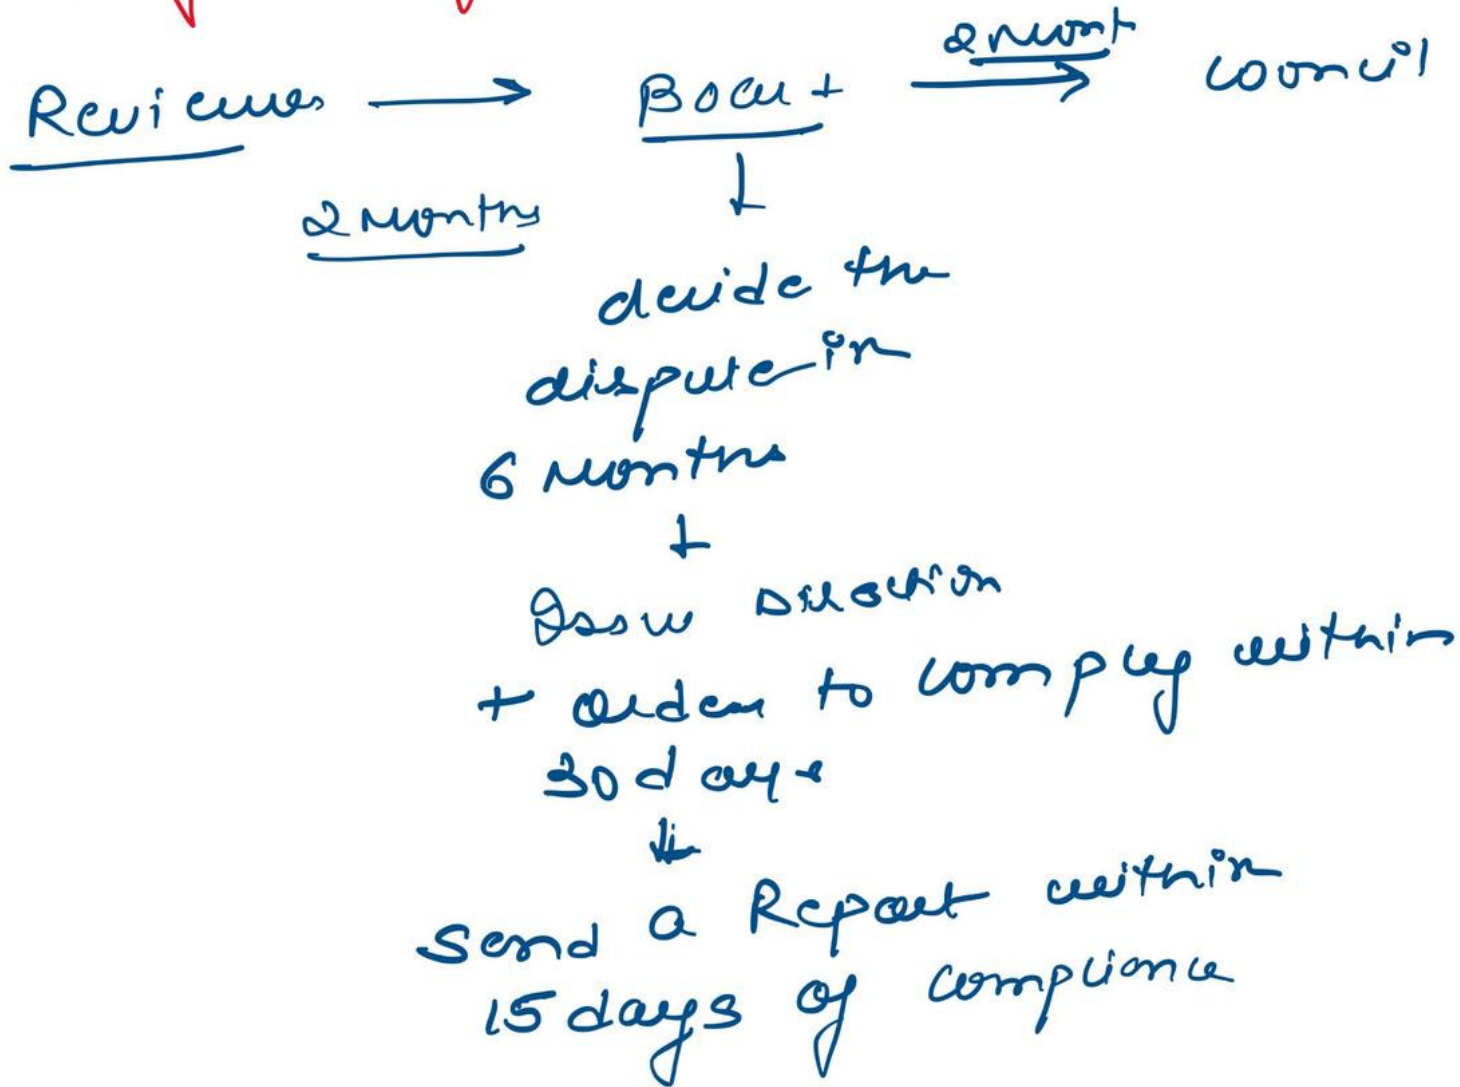 Reviews → Bocu + 2 mont → council
2 Months
decide the
dispute in
6 Months
Issu Direction
+ order to comply within
30 days
Send a Report within
15 days of compliance